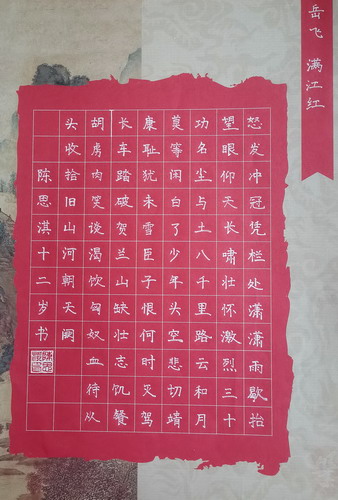 岳飞 满江红
怒发冲冠凭栏处潇潇雨歇抬
望眼仰天长啸壮怀激烈三十
功名尘与土八千里路云和月
莫等闲白了少年头空悲切靖
康耻犹未雪臣子恨何时灭驾
长车踏破贺兰山缺壮志饥餐
胡虏肉笑谈渴饮匈奴血待从
头收拾旧山河朝天阙
陈思淇十二岁书